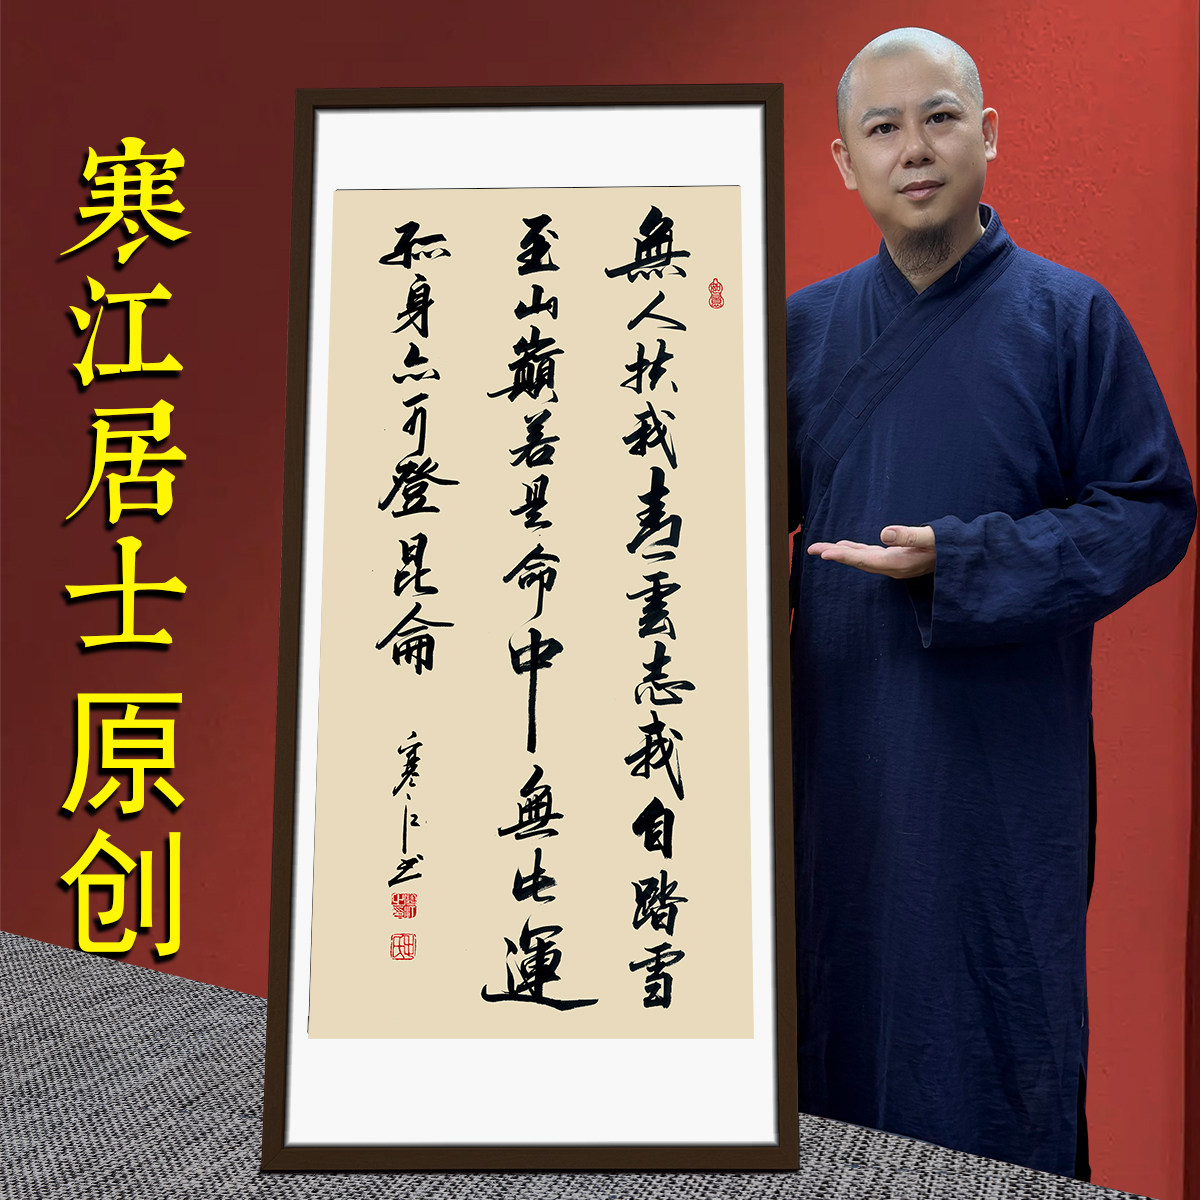 寒江居士原创
無人扶我青雲志我自踏雪
至山巔若是命中無此運
孤身亦可登昆侖
寒江书